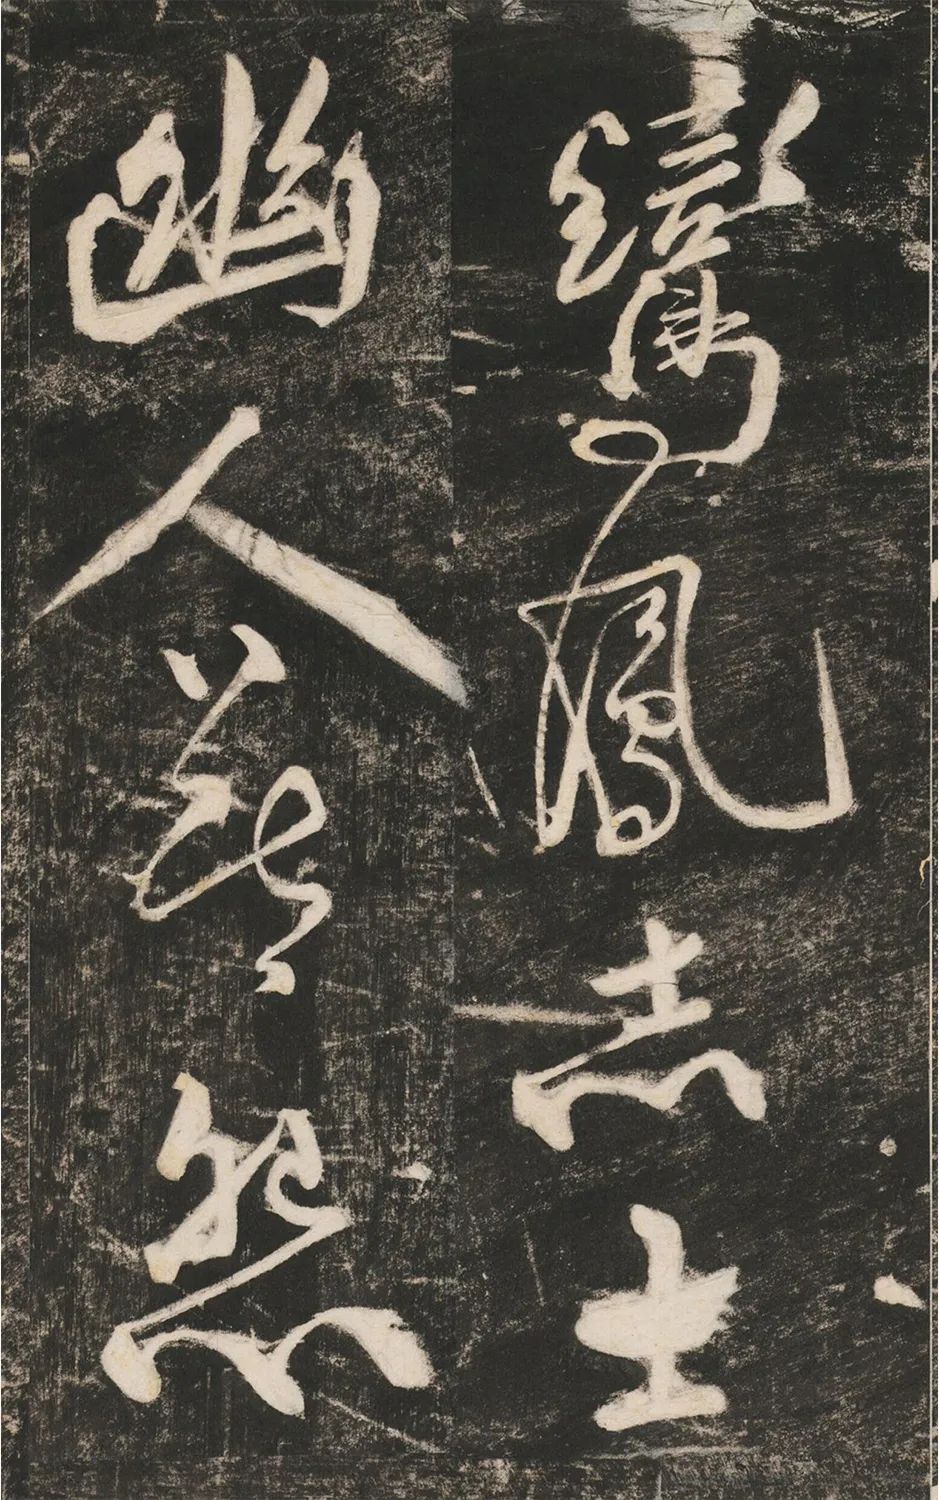 鸞鳳志士
幽人莫怨